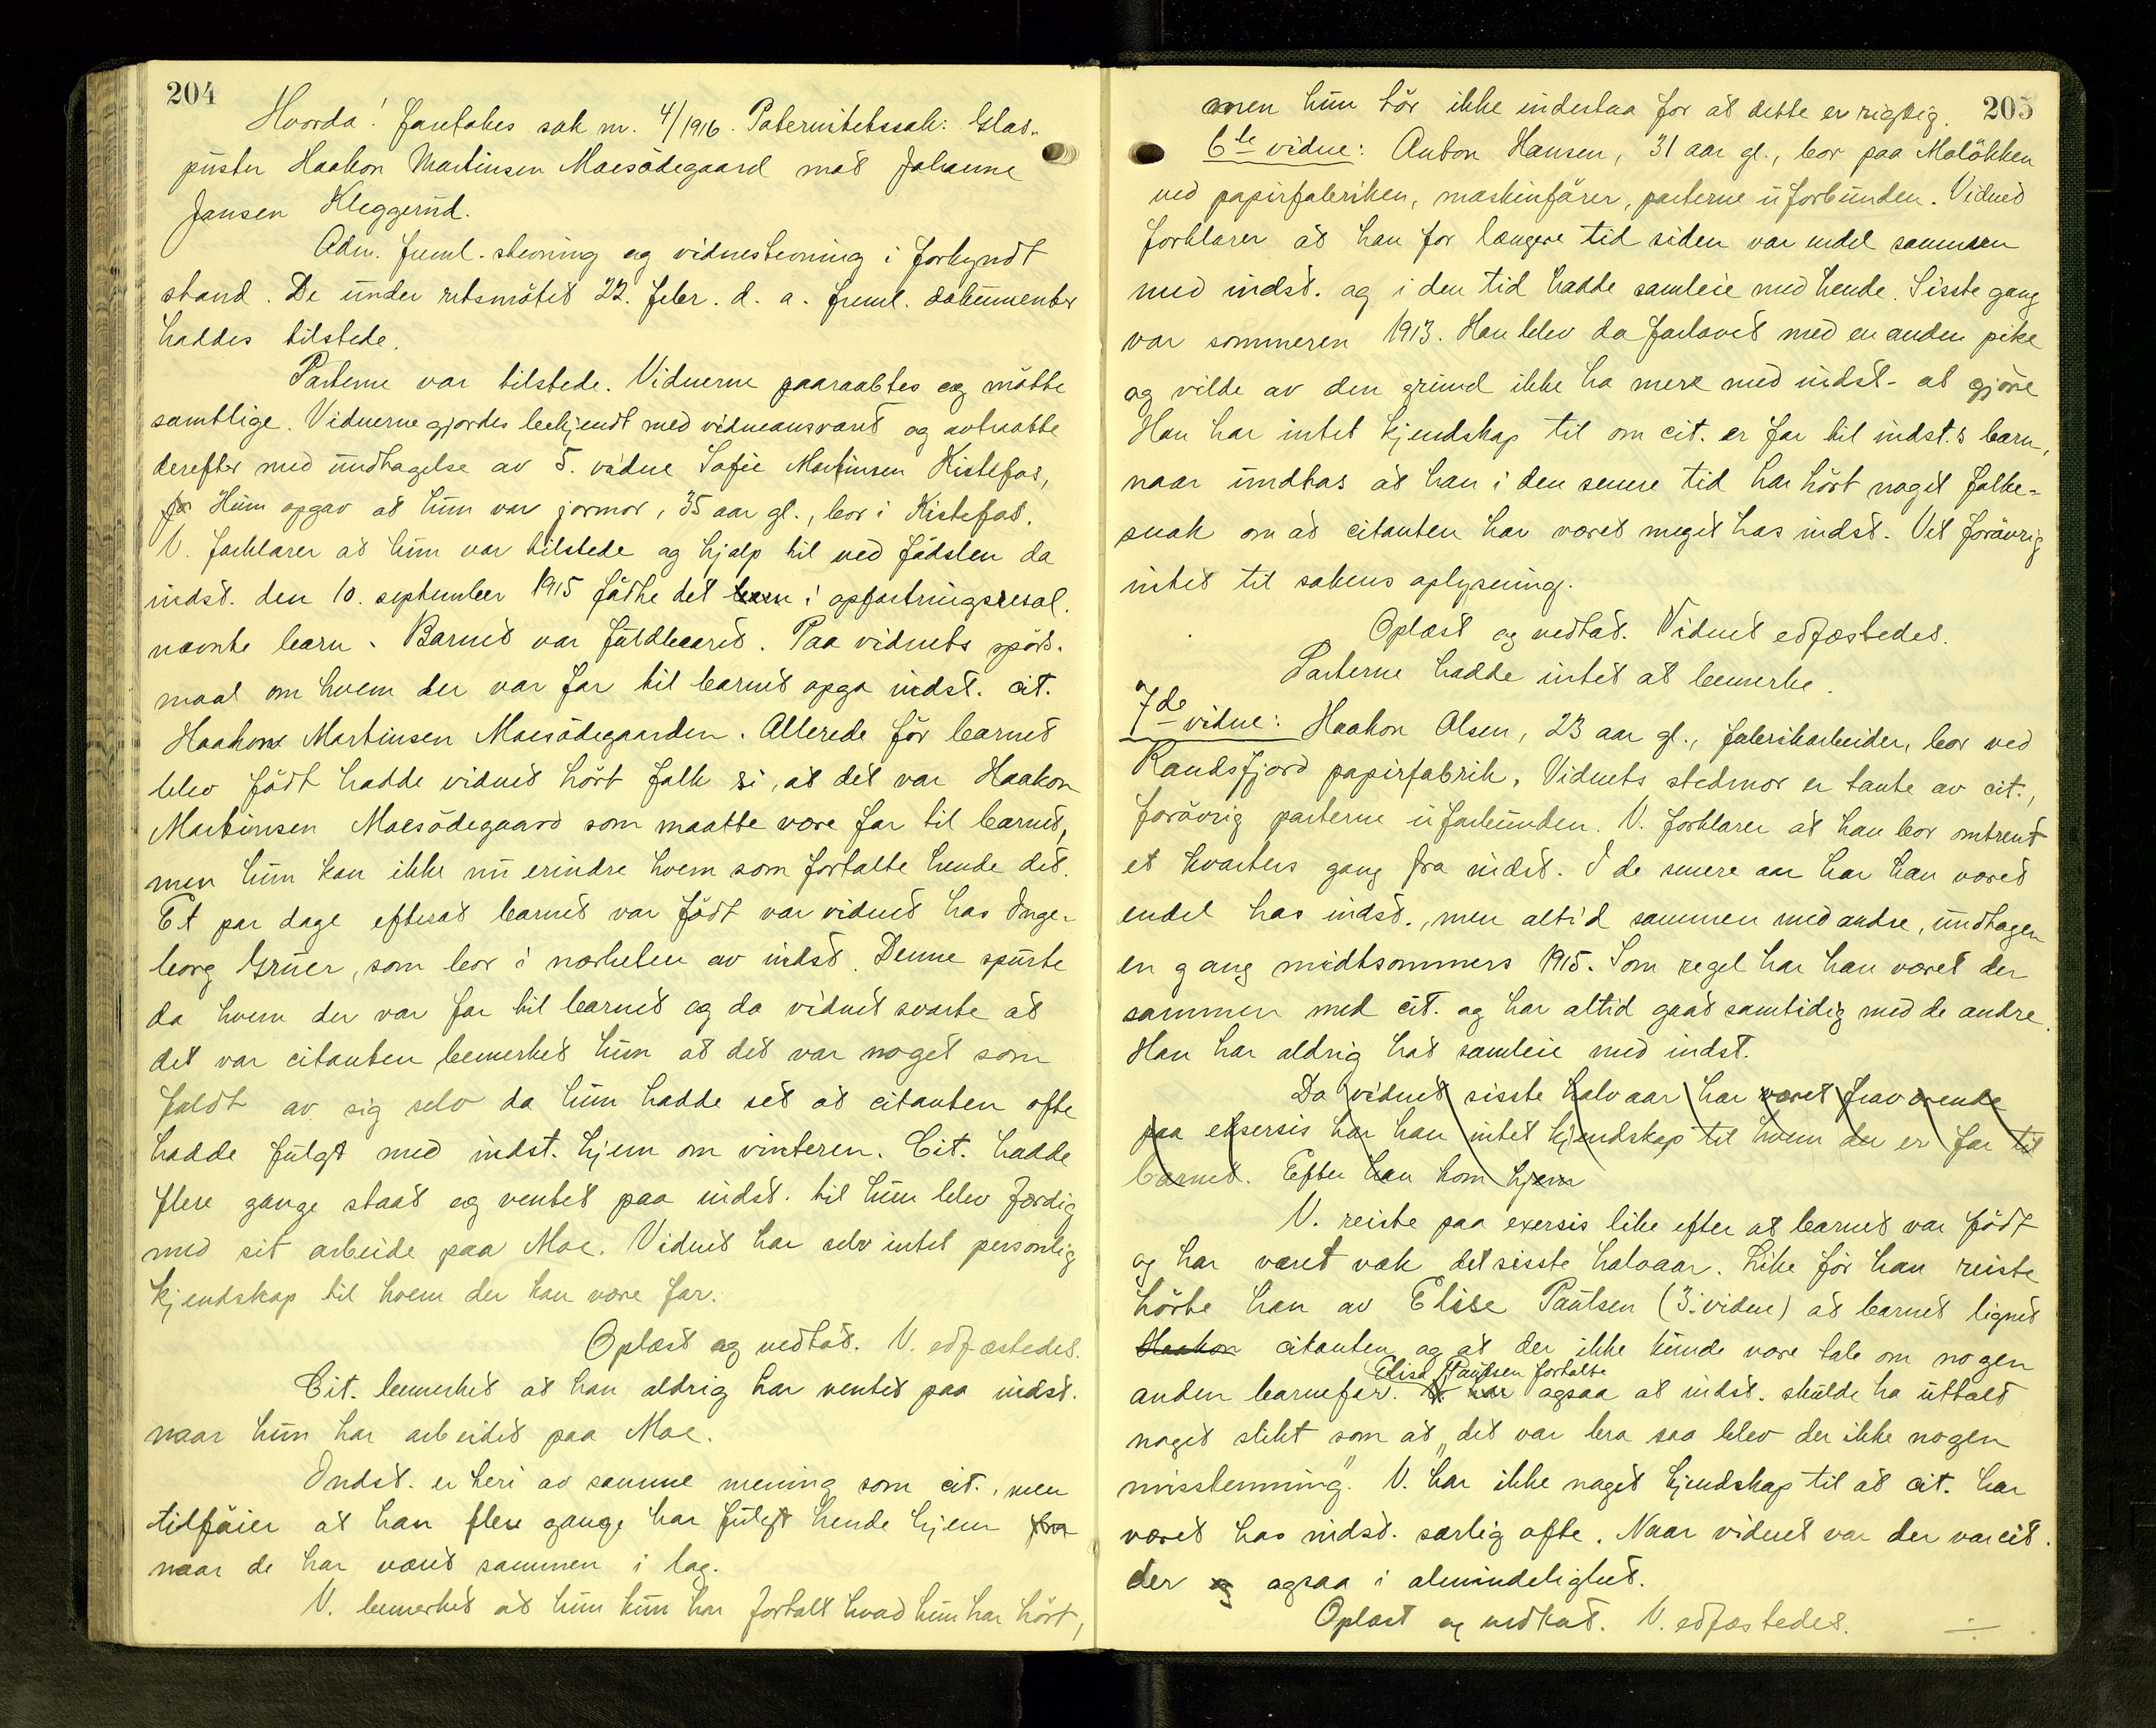 204
Hvorda! foretokes sak nr. 4/1916. Paternitetssak: Glas-
puster Haakon Martinsen Moesødegaard mot Johanne
Jansen Kleggerud.
Adm. freml. stevning og vidnestevning i forkyndt
stand. De under retsmøtet 22. febr. d. a. freml. dokumenter
haddes tilstede.
Parterne var tilstede. Vidnerne paaroptes og møtte
samtlige. Vidnerne gjordes bekjendt med vidneansvaret og avtraatte
derefter med undtagelse av 5. vidne Sofie Martinsen Kistefos,
for Hun opgav at hun var jormor, 35 aar gl., bor i Kistefos.
V. forklarer at hun var tilstede og hjalp til ved fødslen da
indst. den 10. september 1915 fødte det barn i opfostringsresol.
nævnte barn. Barnet var fuldbaaret. Paa vidnets spørs-
maal om hvem der var far til barnet opga indst. cit.
Haakon Martinsen Moesødegaarden. Allerede før barnet
blev født hadde vidnet hørt folk si, at det var Haakon
Martinsen Moesødegaard som maatte være far til barnet,
men hun kan ikke nu erindre hvem som fortalte hende det.
Et par dage efterat barnet var født var vidnet hos Inge-
borg Gruer, som bor i nærheten av indst. Denne spurte
da hvem der var far til barnet og da vidnet svarte at
det var citanten bemerket hun at det var noget som
faldt av sig selv da hun hadde set at citanten ofte
hadde fulgt med indst. hjem om vinteren. Cit. hadde
flere gange staat og ventet paa indst. til hun blev færdig
med sit arbeide paa Moe. Vidnet har selv intet personlig
kjendskap til hvem der kan være far.
Oplæst og vedtat. V. edfæstedes.
Cit. bemerket at han aldrig har ventet paa indst.
naar hun har arbeidet paa Moe.
Indst. er heri av samme mening som cit., men
tilføier at han flere gange har fulgt hende hjem fra
naar de har været sammen i lag.
V. bemerket at hun kun har fortalt hvad hun har hørt,
205
men hun tør ikke indestaa for at dette er rigtig.
6te vidne: Anton Hansen, 31 aar gl., bor paa Moløkken
ved papirfabriken, maskinfører, parterne uforbunden. Vidnet
forklarer at han for længere tid siden var endel sammen
med indst. og i den tid hadde samleie med hende. Sisste gang
var sommeren 1913. Han blev da forlovet med en anden pike
og vilde av den grund ikke ha mere med indst. at gjøre
Han har intet kjendskap til om cit. er far til indst.s barn,
naar undtas at han i den senere tid har hørt noget folke-
snak om at citanten har været meget hos indst. Vet forøvrig
intet til sakens oplysning.
Oplæst og vedtat. Vidnet edfæstedes.
Parterne hadde intet at bemerke.
7de vidne: Haakon Olsen, 23 aar gl., fabrikarbeider, bor ved
Randsfjord papirfabrik, Vidnets stedmor er tante av cit.,
forøvrig parterne uforbunden. V. forklarer at han bor omtrent
et kvarters gang fra indst. I de senere aar har han været
endel hos indst., men altid sammen med andre, undtagen
en gang midtsommers 1915. Som regel har han været der
sammen med cit. og har altid gaat samtidig med de andre.
Han har aldrig hat samleie med indst.
Da vidnet sisste halvaar har været fraværende
paa eksersis har han intet kjendskap til hvem der er far til
barnet. Efter han kom hjem
V. reiste paa exersis like efter at barnet var født
og har været væk det sisste halvaar. Like før han reiste
hørte han av Elise Paulsen (3. vidne) at barnet lignet
Haakon citanten og at der ikke kunde være tale om nogen
Elise Paulsen fortalte
anden barnefar. har ogsaa at indst. skulde ha uttalt
noget slikt som at „det var bra saa blev der ikke nogen
misstemning". V. har ikke noget kjendskap til at cit. har
været hos indst. særlig ofte. Naar vidnet var der var cit.
der og ogsaa i almindelighet.
Oplæst og vedtat. V. edfæstedes.